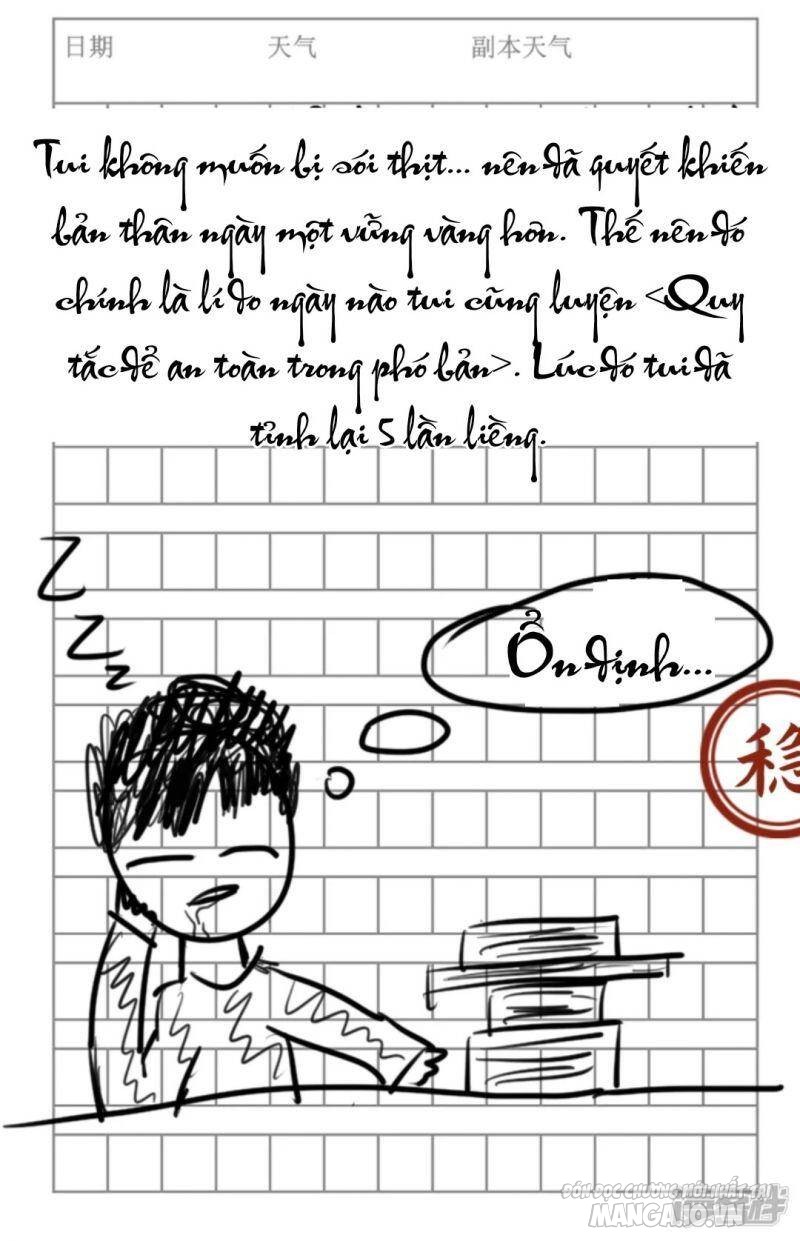 日期 天气 副本天气
Tui không muốn bị sói thịt... nên đã quyết khiến
bản thân ngày một vững vàng hơn. Thế nên đó
chính là lí do ngày nào tui cũng luyện <Quy
tắc để an toàn trong phó bản>. Lúc đó tui đã
tỉnh lại 5 lần liềng.
Z
Z
Z
Ổn định...
稳
ĐÓN ĐỌC CHƯƠNG MỚI NHẤT TẠI
MANGA10.VN